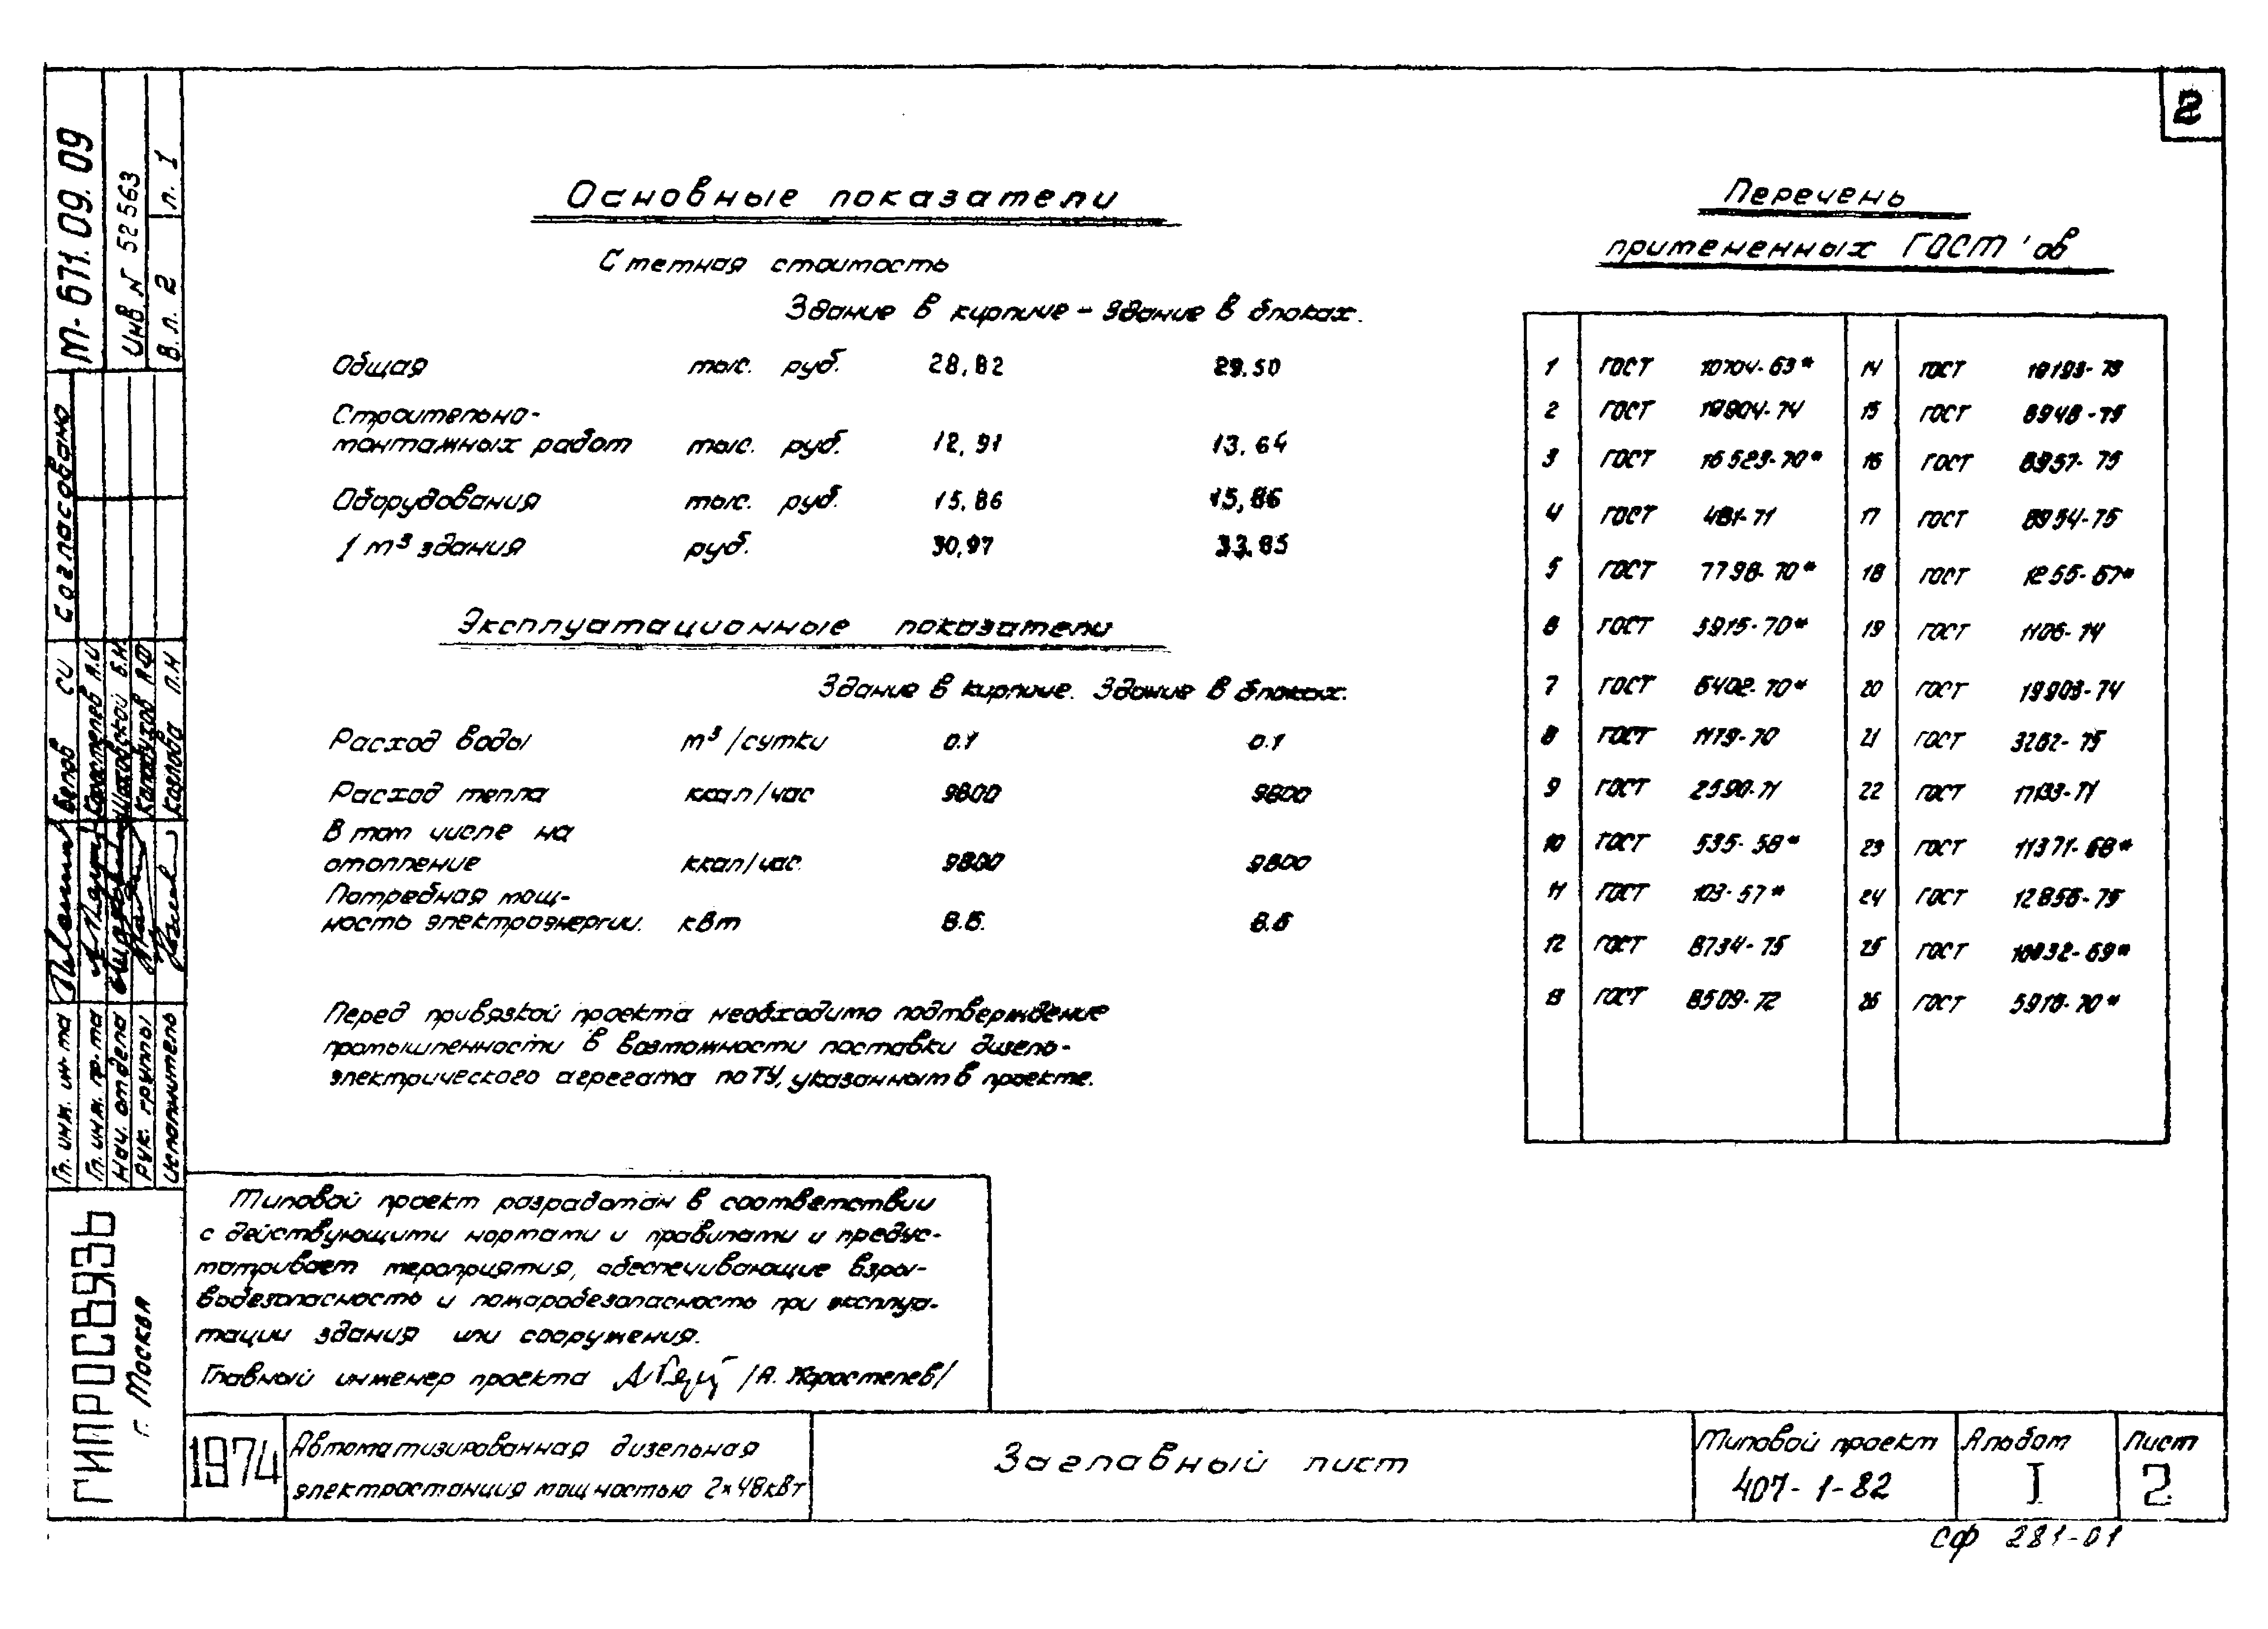 2
Основные показатели
Сметная стоимость
Здание в кирпиче - Здание в блоках.
Общая тыс. руб. 28,82 29.50
Строительно-
монтажных работ тыс. руб. 12,91 13.64
Оборудования тыс. руб. 15,86 15,86
1 м³ здания руб. 30,97 33.85
Эксплуатационные показатели
Здание в кирпиче. Здание в блоках.
Расход воды м³/сутки 0.1 0.1
Расход тепла ккал/час 9800 9800
В том числе на
отопление ккал/час. 9800 9800
Потребная мощ-
ность электроэнергии. квт
Перед привязкой проекта необходимо подтверждение
промышленности в возможности поставки дизель-
электрического агрегата по ТУ, указанным в проекте.
Перечень
примененных ГОСТ'ов
1 ГОСТ 10704-63*
2 ГОСТ 19904-74
3 ГОСТ 16523-70*
4 ГОСТ 481-71
5 ГОСТ 7798-70*
6 ГОСТ 5915-70*
7 ГОСТ 6402-70*
8 ГОСТ 1179-70
9 ГОСТ 2590-71
10 ГОСТ 535-58*
11 ГОСТ 103-57*
12 ГОСТ 8734-75
13 ГОСТ 8509-72
14 ГОСТ
15 ГОСТ 8948-75
16 ГОСТ 8957-75
17 ГОСТ 8954-75
18 ГОСТ 1255-67*
19 ГОСТ 1106-74
20 ГОСТ 19903-74
21 ГОСТ 3262-75
22 ГОСТ
23 ГОСТ 11371-68*
24 ГОСТ 12856-75
25 ГОСТ
26 ГОСТ 5918-70*
Типовой проект разработан в соответствии
с действующими нормами и правилами и предус-
матривает мероприятия, обеспечивающие взры-
вобезопасность и пожаробезопасность при эксплуа-
тации здания или сооружения.
Главный инженер проекта /А. Коростелев/
1974
Автоматизированная дизельная
электростанция мощностью 2×48кВт
Заглавный лист
Типовой проект
407-1-82
Альбом
I
Лист
2
СФ 281-01
М-671.09.09
Инв. № 52563
В.п. 2 п. 1
Согласовано
Гл. инж. ин-та Белов СИ
Гл. инж. пр-та Коростелев А.И
Нач. отдела Б.М
Рук. группы А.Ф
Исполнитель Козлова Л.Н
ГИПРОСВЯЗЬ
г. Москва